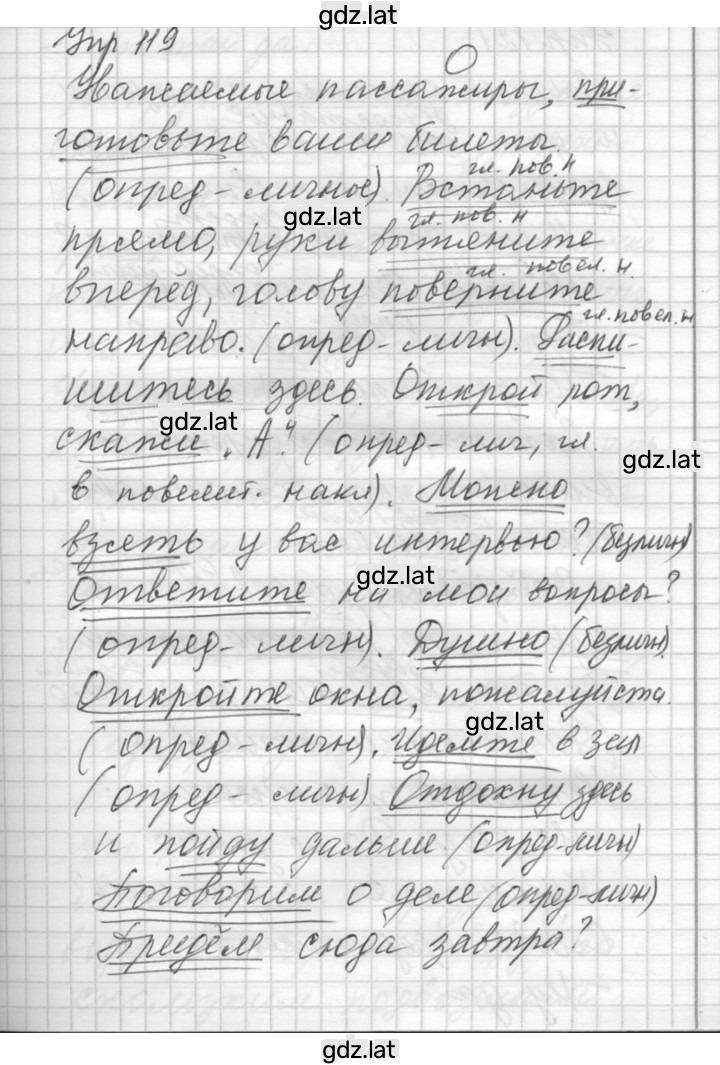 gdz.lat
Упр 119
Уважаемые пассажиры, при-
готовьте ваши билеты.
(опред-личное). Встаньте
гл. пов. н
gdz.lat
прямо, руки вытяните
гл. пов. н
вперёд, голову поверните
гл. повел. н.
направо. (опред-личн). Распи-
гл. повел. н
шитесь здесь. Открой рот,
gdz.lat
скажи „А". (опред-лич, гл.
gdz.lat
в повелит. накл). Можно
взять у вас интервью? (безличн)
gdz.lat
Ответите на мои вопросы?
(опред-личн). Душно (безличн).
Откройте окна, пожалуйста.
gdz.lat
(опред-личн). Идемте в зал
(опред-личн) Отдохну здесь
и пойду дальше (опред-личн)
Поговорим о деле (опред-личн)
Придём сюда завтра?
gdz.lat